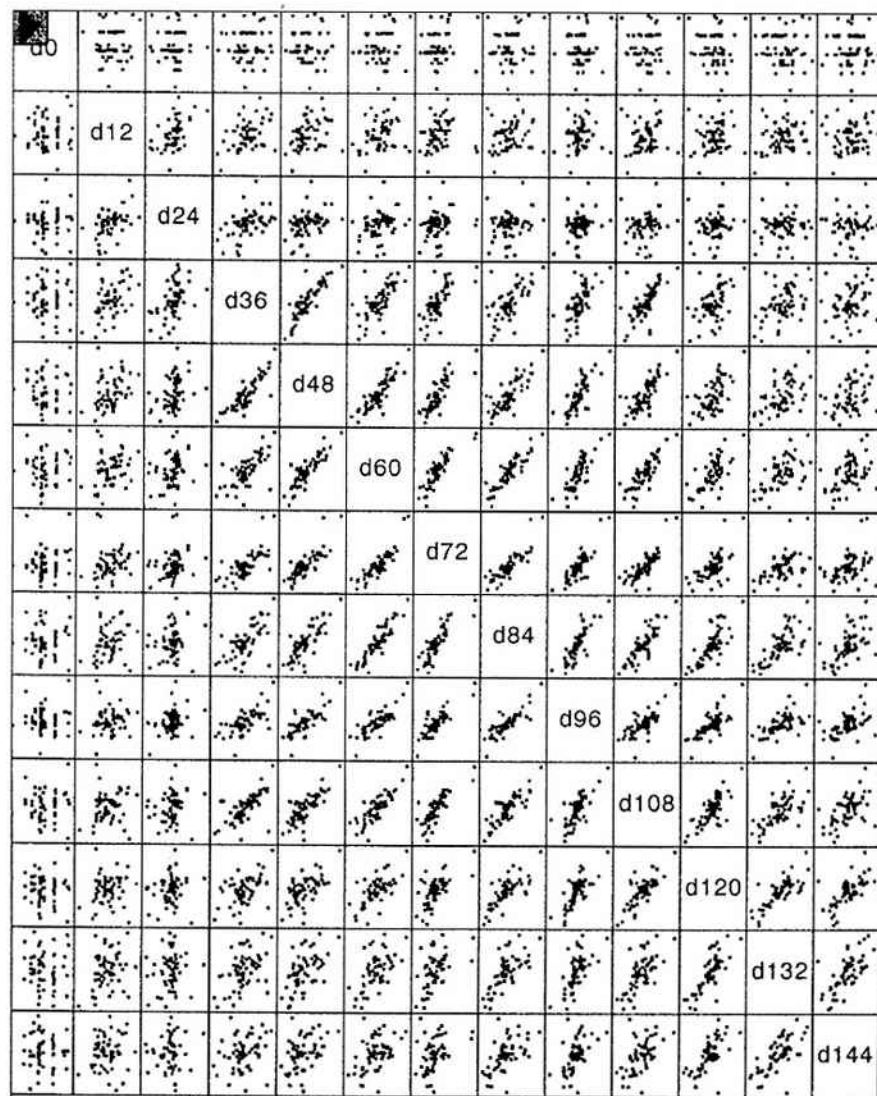 d0
d12
d24
d36
d48
d60
d72
d84
d96
d108
d120
d132
d144